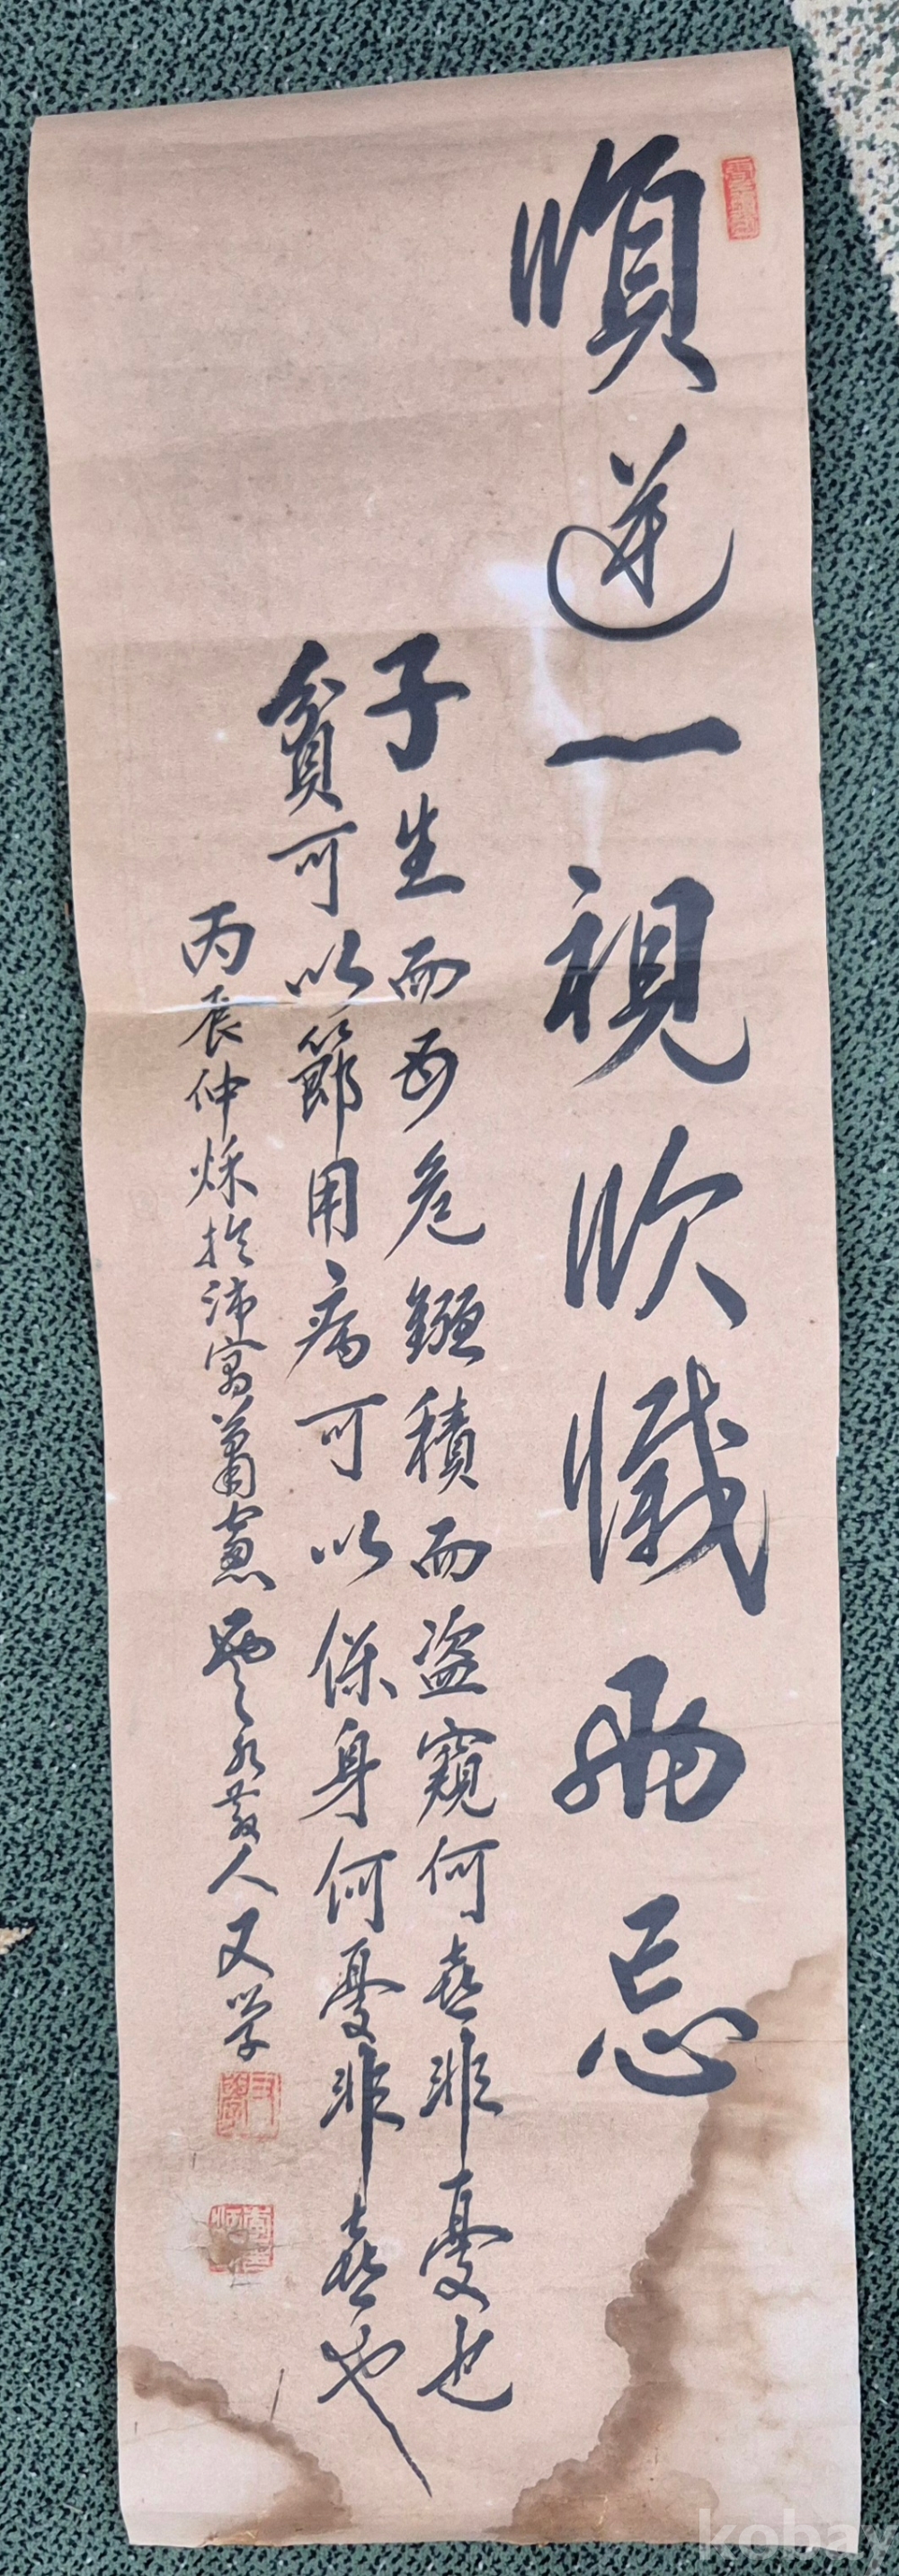 順逆一視欣慽兩忘
子生而母危鏹積而盜窺何喜非憂也
貧可以節用病可以保身何憂非喜也
丙辰仲烁於沛寓蕭窓 散人又学
kobay